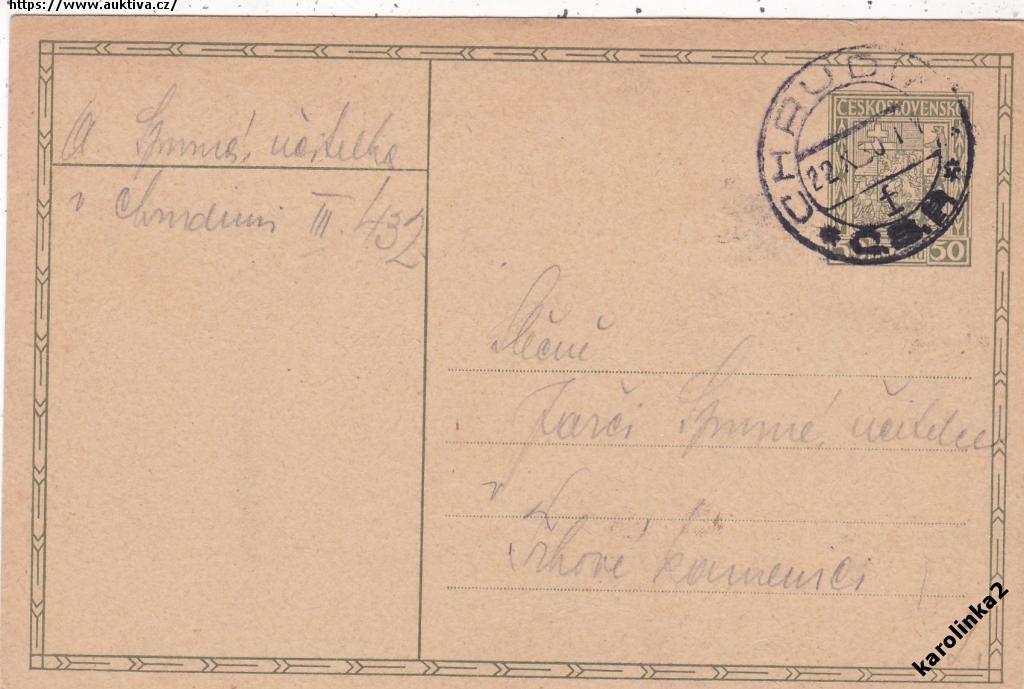 https://www.auktiva.cz/
A. Spurná, učitelka
v Chrudimi III. 432
CHRUDIM
22.X
f
* Č.S.R. *
ČESKOSLOVENSKO
50
Slečně
Jarči Spurné, učitelce
v
Trhové Kamenici
karolinka2